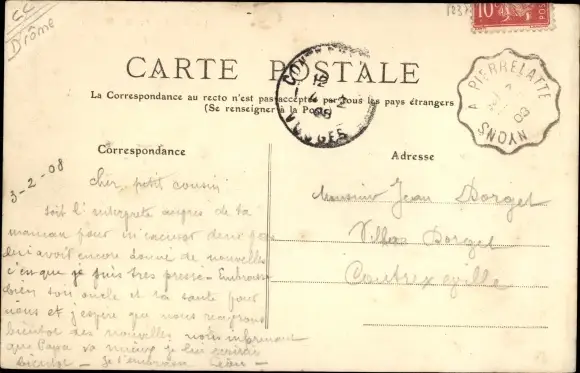 CC
Drôme
1037
10
POSTES
CARTE POSTALE
La Correspondance au recto n'est pas acceptée par tous les pays étrangers
(Se renseigner à la Poste)
CONTREXEVILLE
12
4 - 2
08
VOSGES
PIERRELATTE A NYONS
08
Correspondance
Adresse
3-2-08
cher petit cousin
soit l'interprète auprès de ta
maman pour m'excuser de
lui avoir encore donné de nouvelles
c'est que je suis très pressé. Embrasse
bien ton oncle et ta tante pour
nous et j'espère que nous recevrons
bientôt des nouvelles nous informant
que Papa va mieux je lui
bientôt - Je t'embrasse Léon -
Monsieur Jean Dorget
Villa Dorget
Contrexeville